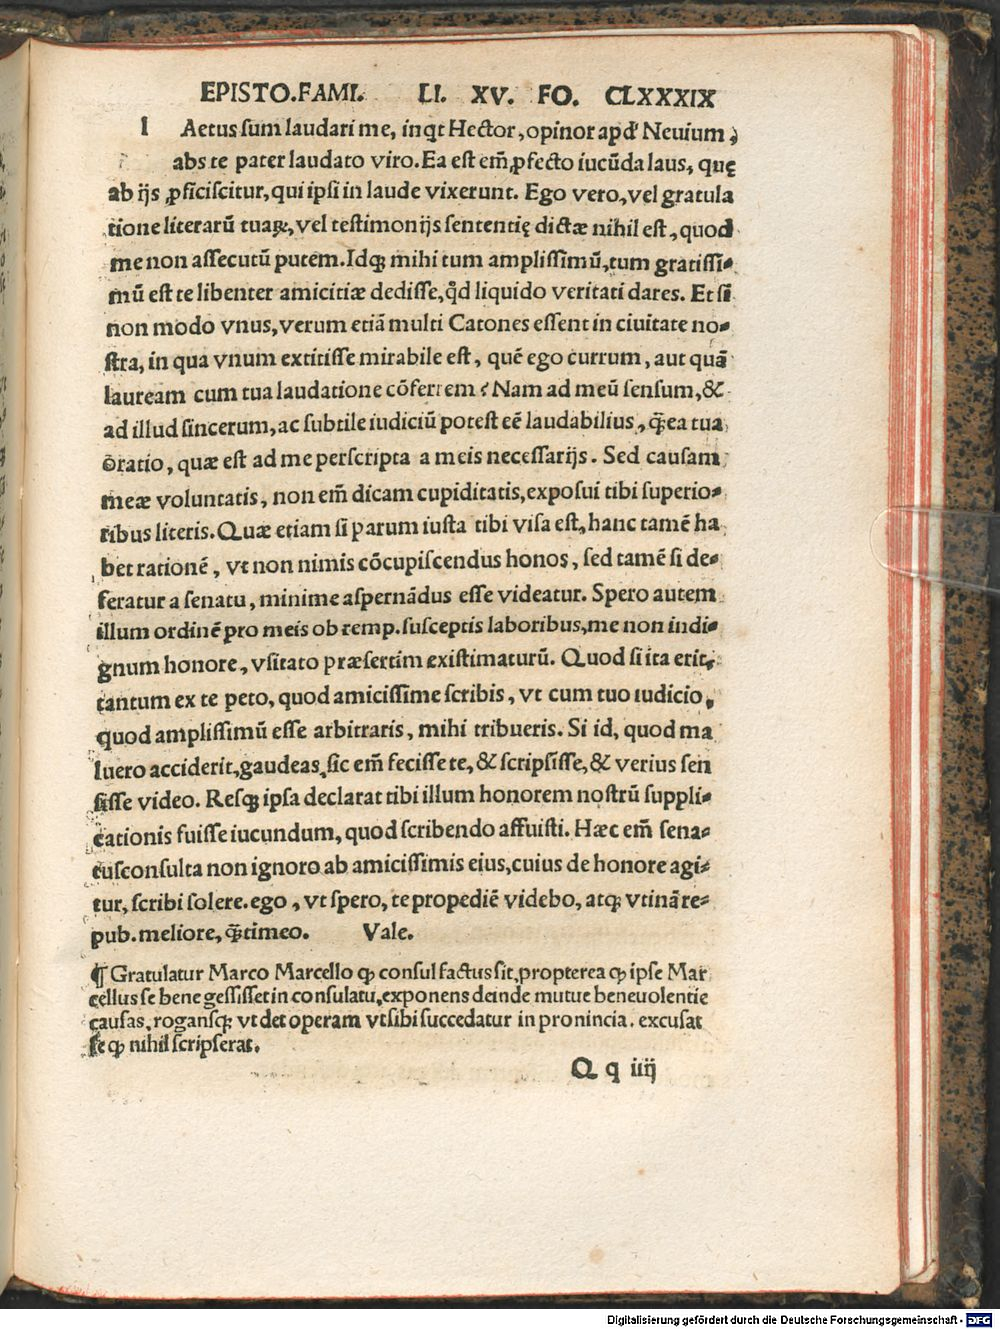 EPISTO.FAMI. LI. XV. FO. CLXXXIX
l Aetus sum laudari me, inqt Hector, opinor apd' Neuium,
abs te pater laudato viro. Ea est em̃ ꝓfecto iucũda laus, quę
ab ijs ꝓficiscitur, qui ipsi in laude vixerunt. Ego vero, vel gratula
tione literarũ tuaꝝ, vel testimonijs sententię dictæ nihil est, quod
me non assecutũ putem. Idqꝫ mihi tum amplissimũ, tum gratissi-
mũ est te libenter amicitiæ dedisse, qd̓ liquido veritati dares. Et si
non modo vnus, verum etiã multi Catones essent in ciuitate no-
stra, in qua vnum extitisse mirabile est, quẽ ego currum, aut quã
lauream cum tua laudatione cõferrem? Nam ad meũ sensum, &
ad illud sincerum, ac subtile iudiciũ potest eẽ laudabilius, q̃ ea tua
oratio, quæ est ad me perscripta a meis necessarijs. Sed causam
meæ voluntatis, non em̃ dicam cupiditatis, exposui tibi superio-
ribus literis. Quæ etiam si parum iusta tibi visa est, hanc tamẽ ha
bet rationẽ, vt non nimis cõcupiscendus honos, sed tamẽ si de-
feratur a senatu, minime aspernãdus esse videatur. Spero autem
illum ordinẽ pro meis ob remp. susceptis laboribus, me non indi-
gnum honore, vsitato præsertim existimaturũ. Quod si ita erit,
tantum ex te peto, quod amicissime scribis, vt cum tuo iudicio,
quod amplissimũ esse arbitraris, mihi tribueris. Si id, quod ma
luero acciderit, gaudeas, sic em̃ fecisse te, & scripsisse, & verius sen
sisse video. Resqꝫ ipsa declarat tibi illum honorem nostrũ suppli-
cationis fuisse iucundum, quod scribendo affuisti. Hæc em̃ sena-
tusconsulta non ignoro ab amicissimis eius, cuius de honore agi-
tur, scribi solere. ego, vt spero, te propediẽ videbo, atqꝫ vtinã re-
pub. meliore, q̃ timeo. Vale.
¶ Gratulatur Marco Marcello ꝙ consul factus sit, propterea ꝙ ipse Mar
cellus se bene gessisset in consulatu, exponens deinde mutue beneuolentie
causas, rogansqꝫ vt det operam vt sibi succedatur in prouincia. excusat
se ꝙ nihil scripserat.
Q q iiij
Digitalisierung gefördert durch die Deutsche Forschungsgemeinschaft - DFG